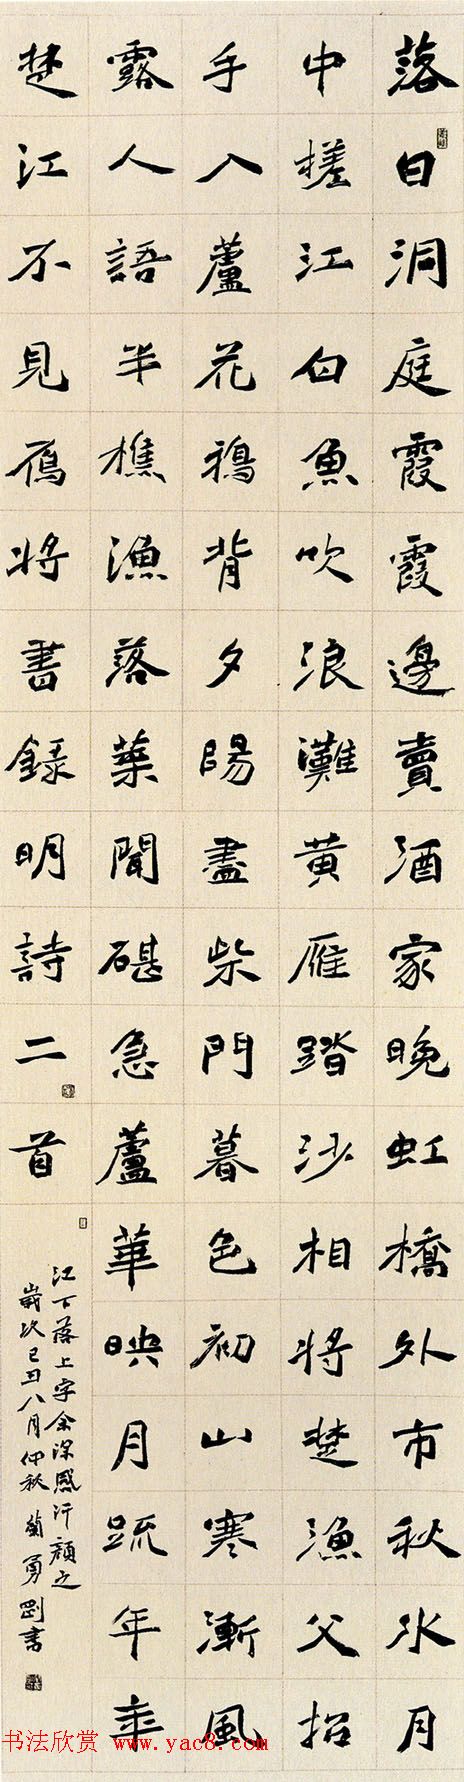 落日洞庭霞霞邊賣酒家晚虹橋外市秋水月
中槎江白魚吹浪灘黃雁踏沙相將楚漁父招
手入蘆花鴉背夕陽盡柴門暮色初山寒漸風
露人語半樵漁落葉聞碪急蘆華映月疏年年
楚江不見鴈將書錄明詩二首
江下落上字余深感汗顏之
歲次己丑八月仲秋勇剛書
书法欣赏 www.yac8.com